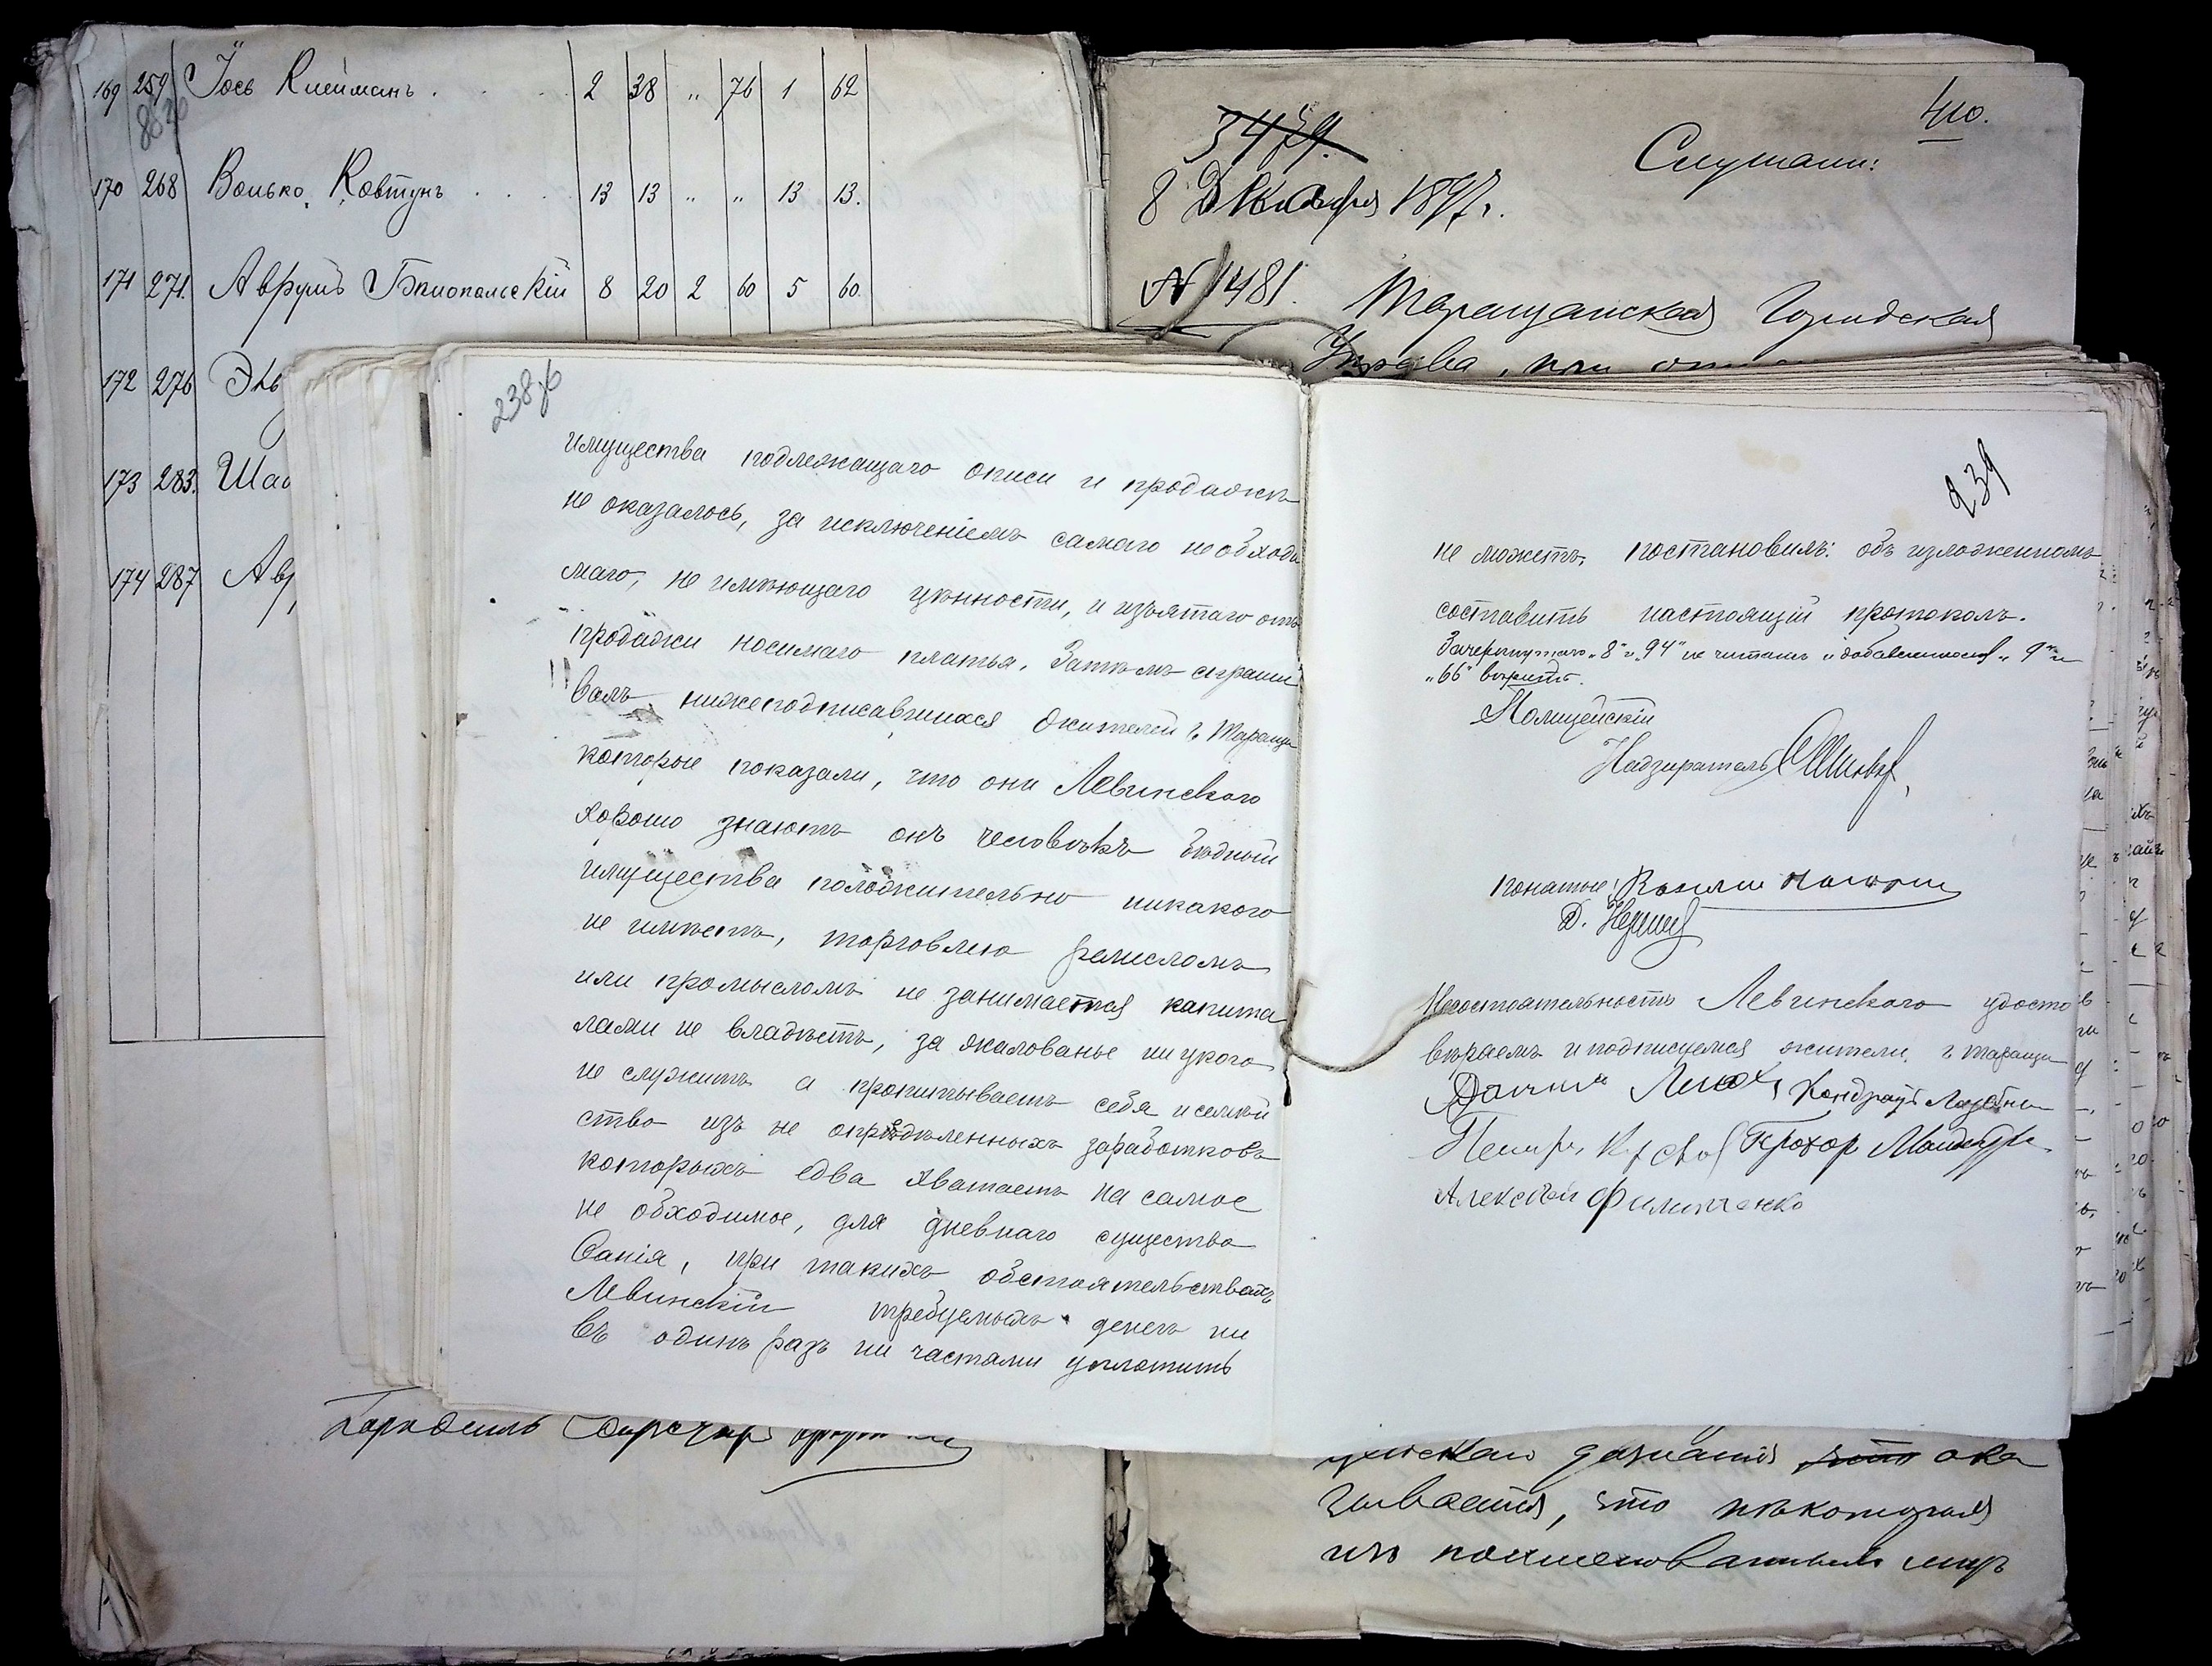 169 259 Іось Клейманъ . . . 2 38 " 76 1 62
170 268 Волько Ковтунъ . . . 13 13 " " 13 13.
171 271. Аврумъ Бялопольскій 8 20 2 60 5 60.
172 276
173 283.
174 287
410.
Слушали:
8 Декабря 1897 г.
№ 1481. Таращанская Городская
Управа, при
238 об
имущества подлежащаго описи и продажѣ
не оказалось, за исключеніемъ самаго необходи
маго, не имѣющаго цѣнности, и изъятаго отъ
продажи носимаго платья. Затѣмъ спраши
валъ нижеподписавшихся жителей г. Таращи
которые показали, что они Левинского
хорошо знаютъ онъ человѣкъ бѣдный
имущества положительно никакого
не имѣетъ, торговлею ремисломъ
или промысломъ не занимается капита
лами не владѣетъ, за жалованье ни укого
не служитъ а пропитываетъ себя и семей
ство изъ не опредѣленныхъ заработковъ
которыхъ едва хватаетъ на самое
не обходимое, для дневнаго существо
ванія, при такихъ обстоятельствахъ
Левинскій требуемыхъ денегъ ни
въ одинъ разъ ни частями уплатить
239
не можетъ, постановилъ: объ изложенномъ
составить настоящій протоколъ.
Зачеркнутаго „8" и „94" не читать и добавленное „9" и
„66" вѣрить.
Полицейскій
Надзиратель
понятые:
Д.
Несостоятельность Левинского удосто
вѣряемъ и подписуемся жители г. Таращи
Кондратъ
Петръ Прохоръ
Алексѣй Филипченко
дознанія ока
зывается, что нѣкоторыя
изъ поименованныхъ лицъ